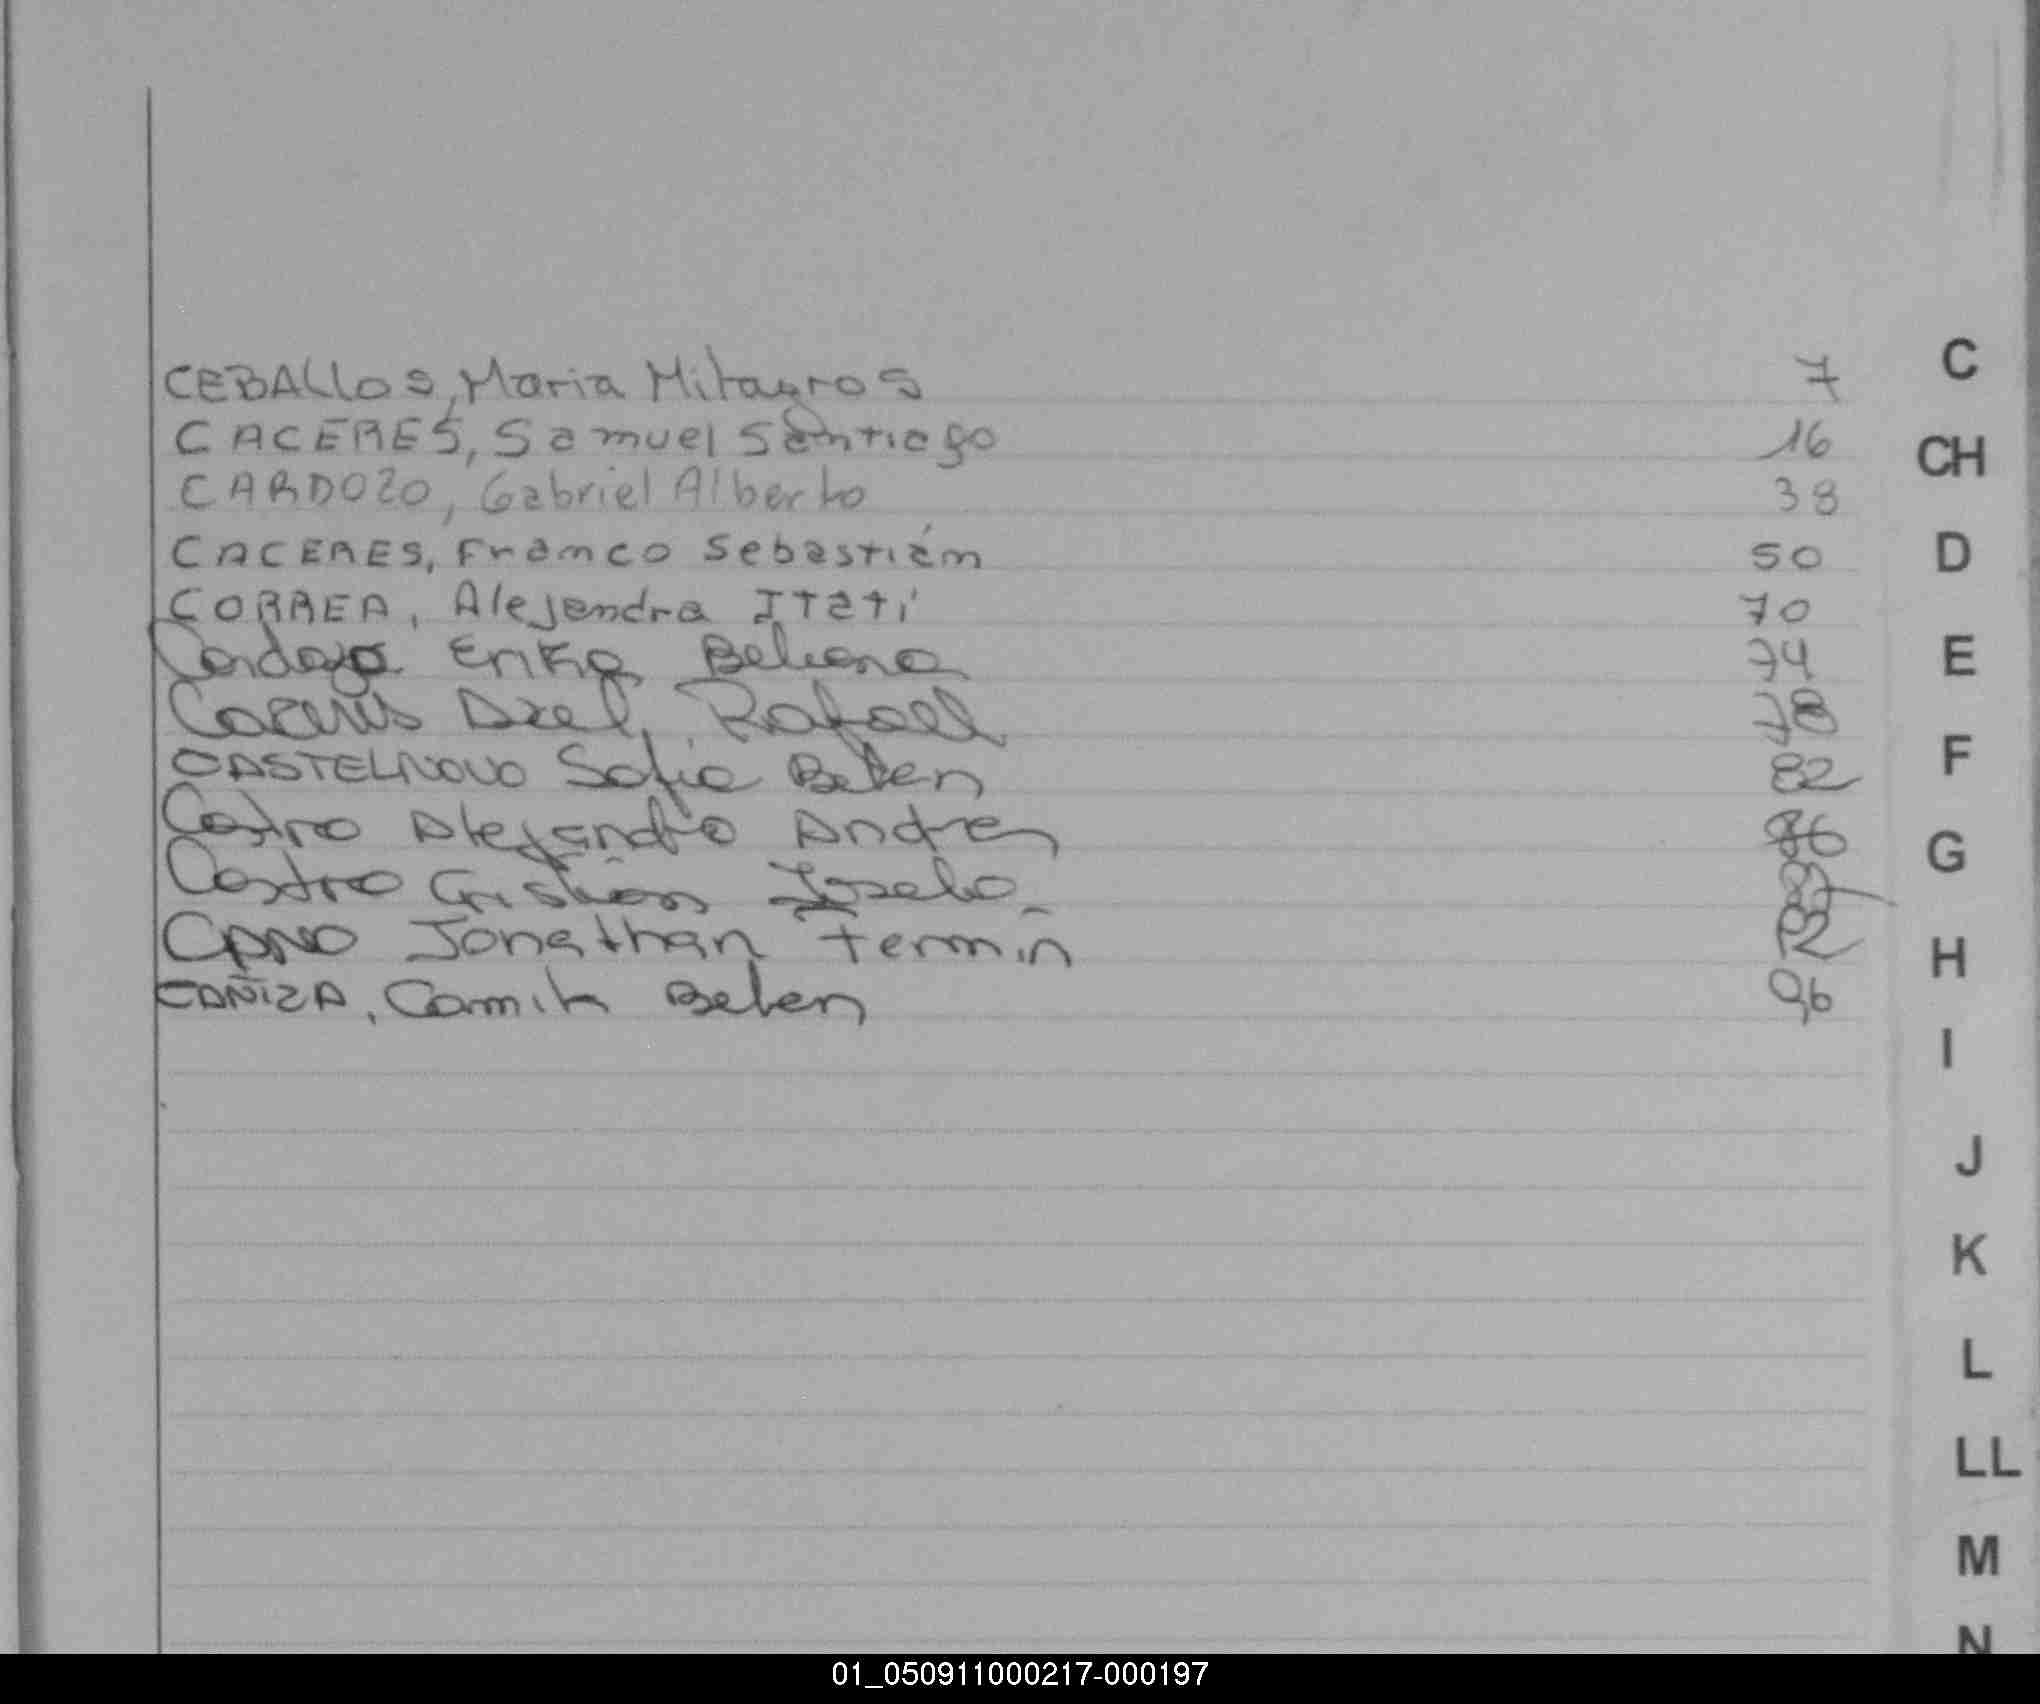 CEBALLOS, Maria Milagros 7 C
CACERES, Samuel Santiago 16 CH
CARDOZO, Gabriel Alberto 38
CACERES, Franco Sebastián 50 D
CORREA, Alejandra Itatí 70
Cardozo Erika Beliana 74 E
Caceres Axel Rafael 78
CASTELNOVO Sofia Belen 82 F
Castro Alejandro Andres 86 G
Castro Cristian
CANO Jonathan Fermin 92 H
CAÑIZA, Camila Belen 96
I
J
K
L
LL
M
N
01_050911000217-000197